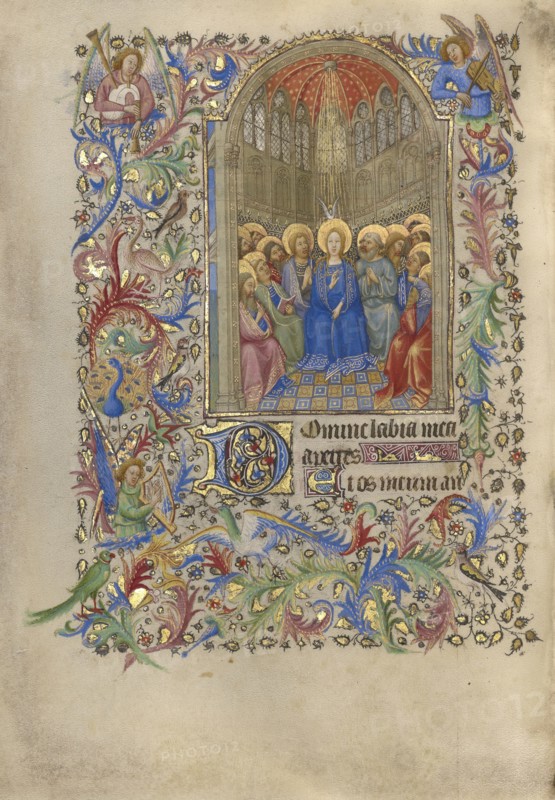 Domine labia mea
aperies
Et os meum an
PHOTO12
PHOTO12